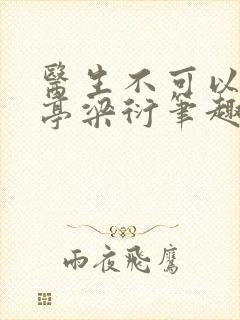 醫生不可以
亭梁衍筆趣
雨夜飛鷹